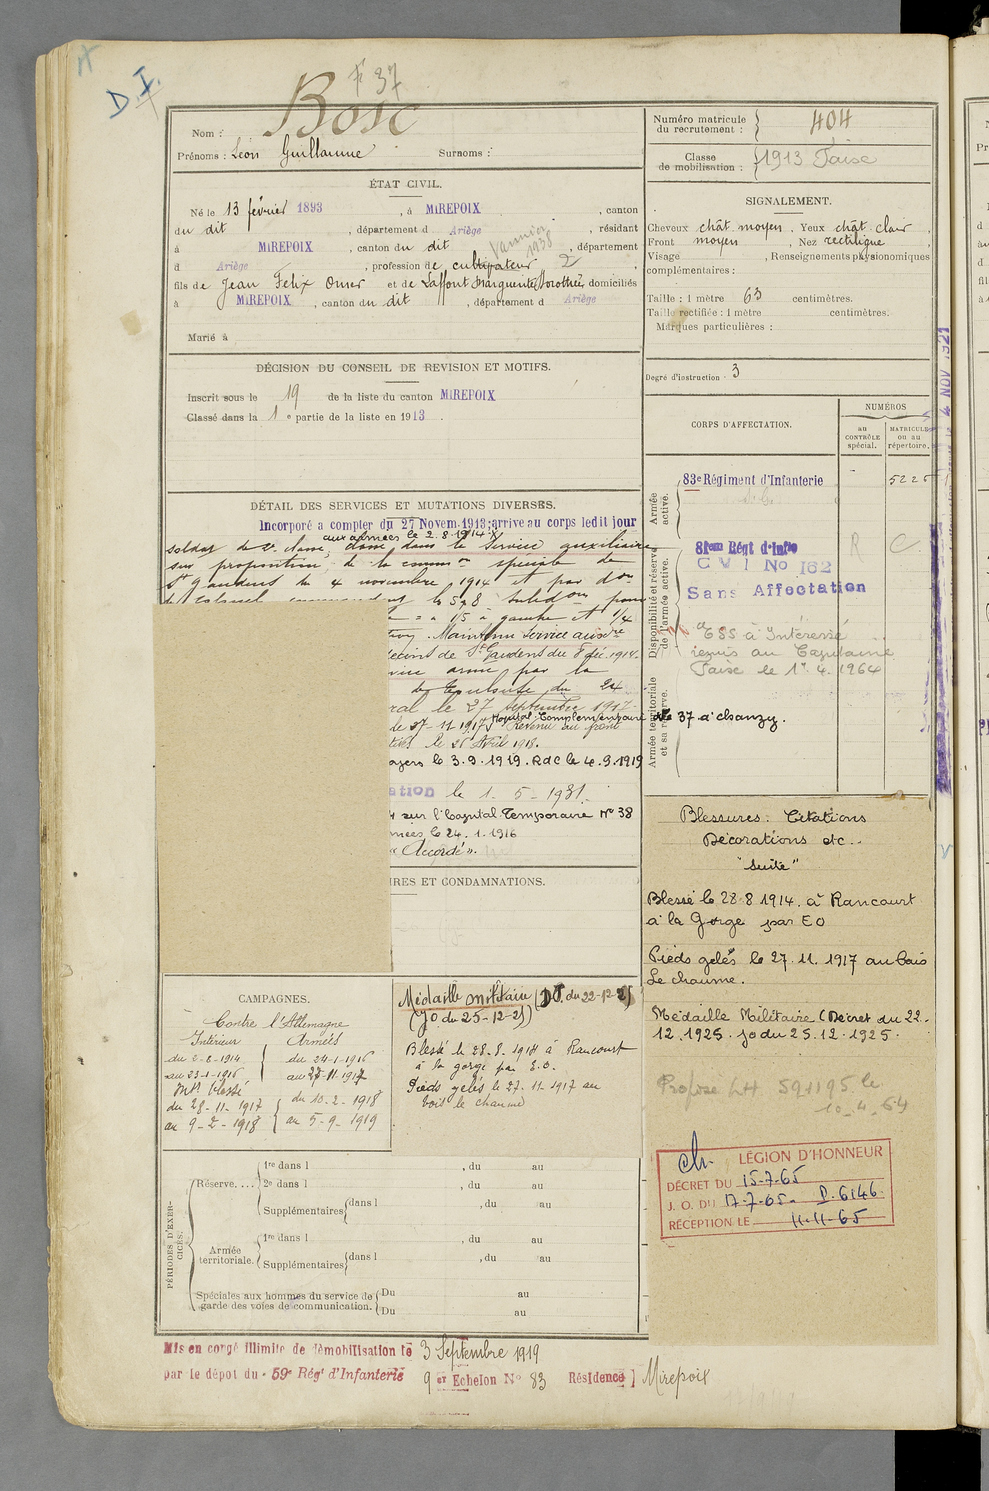 D.I.
F 37
Bosc
Nom :
Prénoms : Léon Guillaume Surnoms :
Numéro matricule du recrutement : 404
Classe de mobilisation : 1913
ÉTAT CIVIL.
Né le 13 février 1893, à MIREPOIX, canton
du dit, département d Ariège, résidant
à MIREPOIX, canton du dit, département
d Ariège, profession de cultivateur
fils de Jean Félix Omer et de Laffont Marguerite Dorothée, domiciliés
à MIREPOIX, canton du dit, département d Ariège
Marié à
SIGNALEMENT.
Cheveux chât. moyen. Yeux chât. clair,
Front moyen, Nez rectiligne
Visage , Renseignements physionomiques
complémentaires :
Taille : 1 mètre 63 centimètres.
Taille rectifiée : 1 mètre centimètres.
Marques particulières :
Degré d'instruction : 3
DÉCISION DU CONSEIL DE REVISION ET MOTIFS.
Inscrit sous le 19 de la liste du canton MIREPOIX
Classé dans la 1 e partie de la liste en 1913.
CORPS D'AFFECTATION.
NUMÉROS
au CONTRÔLE spécial.
MATRICULE ou au répertoire.
Armée active.
83e Régiment d'Infanterie 5225
Disponibilité et réserve de l'armée active.
81eme Régt d'Infie R C
C M I No 162
Sans Affectation
ESS à Intéressé
le 1er. 4. 1964
Armée territoriale et sa réserve.
DÉTAIL DES SERVICES ET MUTATIONS DIVERSES.
Incorporé à compter du 27 Novem. 1913; arrivé au corps ledit jour
aux armées le 2.8.1914
soldat de 2e classe, classé dans le Service auxiliaire
sur proposition de la comm on spéciale de
St Gaudens le 4 novembre 1914 et par don
1/5 à gauche et 1/4
Maintenu Service auxre
de St Gaudens du 8 déc. 1914.
armé par la
de Toulouse du 24
le 27 septembre 1917.
de 27-11-1917 Hopital Complémentaire de 37 à chanzy.
le 28 Avril 1918.
le 3.9.1919. RdC le 4.9.1919
le 1. 5 - 1931.
sur l'Hopital Temporaire N° 38
le 24. 1. 1916
"Accordé".
IRES ET CONDAMNATIONS.
Blessures : Citations
Décorations etc..
"Suite"
Blessé le 28.8.1914. à Rancourt
à la Gorge par EO
Pieds gelés le 27. 11. 1917 au bois
Le chaume.
Médaille Militaire (Décret du 22.
12. 1925. Jo du 25.12.1925.
Proposé LH 591195 le
10_4_64
LÉGION D'HONNEUR
DÉCRET DU 15-7-65
J. O. DU 17-7-65 P. 6146.
RÉCEPTION LE 11-11-65
CAMPAGNES.
Contre l'Allemagne
Intérieur Armées
du 2-8-1914 du 24-1-1916
au 23-1-1916 au 27-11-1917
Intr blessé
du 28-11-1917 du 10-2-1918
au 9-2-1918 au 5-9-1919
Médaille militaire (D. du 22-12-25)
(JO du 25-12-25)
Blessé le 28.8.1914 à Rancourt
à la gorge par E.O.
Pieds gelés le 27.11.1917 au
bois le chaume
PÉRIODES D'EXERCICES.
Réserve....
1re dans l , du au
2e dans l , du au
Supplémentaires dans l , du au
Armée territoriale.
1re dans l , du au
Supplémentaires dans l , du au
Spéciales aux hommes du service de garde des voies de communication.
Du au
Du au
Mis en congé illimité de démobilisation le 3 Septembre 1919
par le dépôt du 59e Régt d'Infanterie 9 er Echelon No 83 Résidence Mirepoix
4 NOV 1921